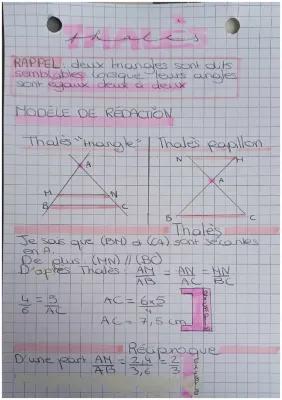 Thalès
RAPPEL : deux triangles sont dits
semblables lorsque leurs angles
sont égaux deux à deux
MODÈLE DE RÉDACTION
Thalès "triangle" Thalès papillon
A
M N
B C
N M
A
B C
Thalès
Je sais que (BM) et (CA) sont sécantes
en A.
De plus, (MN) // (BC)
D'après Thalès : AM/AB = AN/AC = MN/BC
4/6 = 5/AC AC = 6x5/4
AC = 7,5 cm
Réciproque
D'une part AM/AB = 2,4/3,6 = 2/3